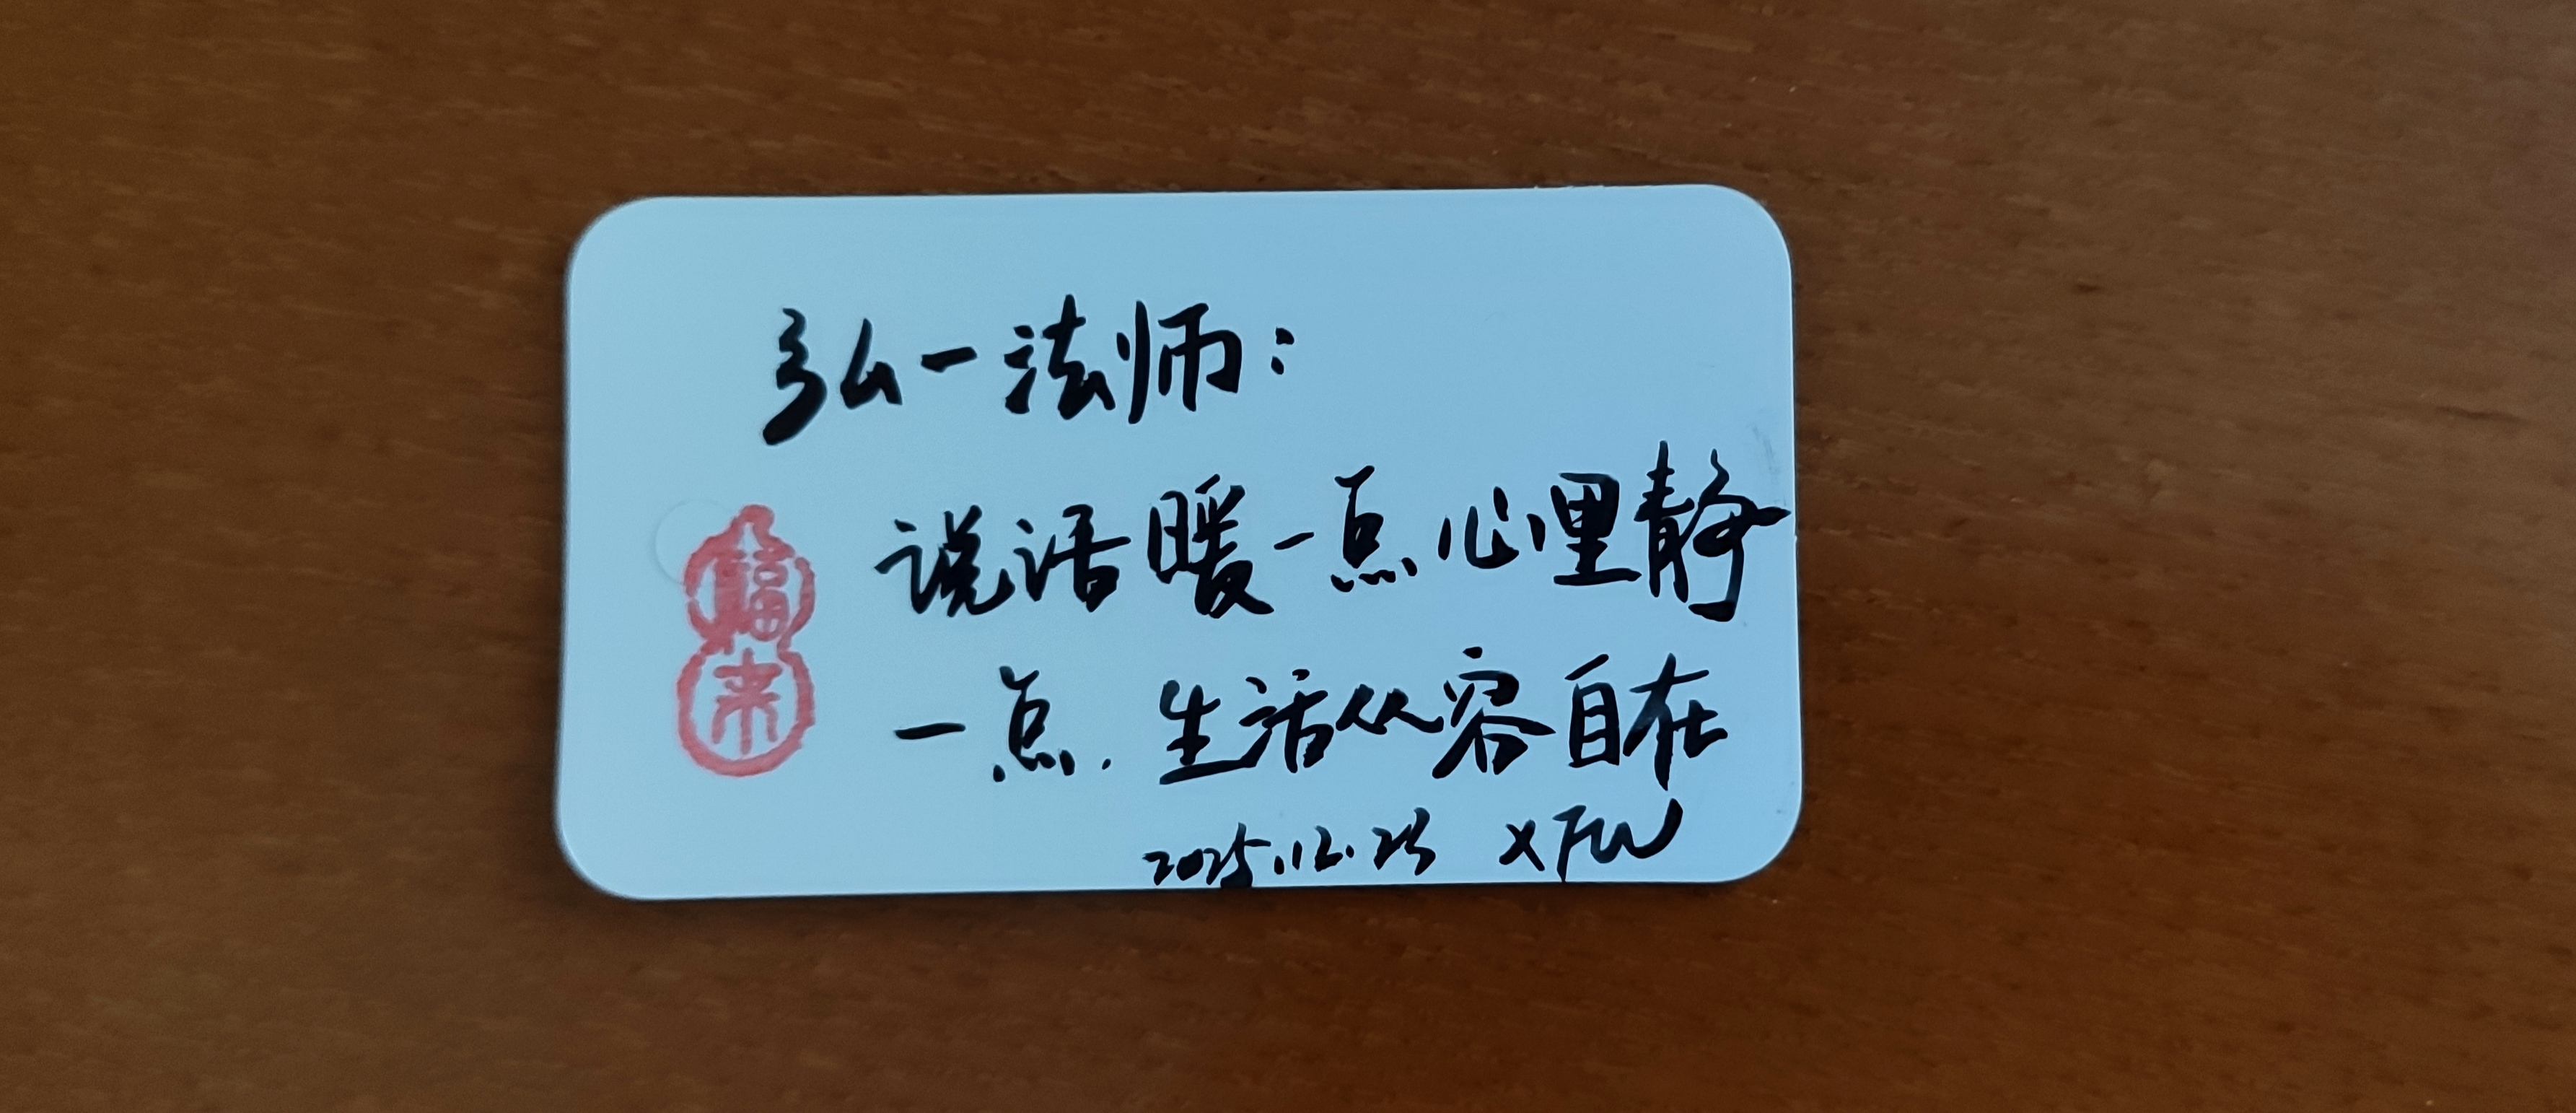 弘一法师：
说话暖一点心里静
一点.生活从容自在
2025.12.25 XFW
福
来